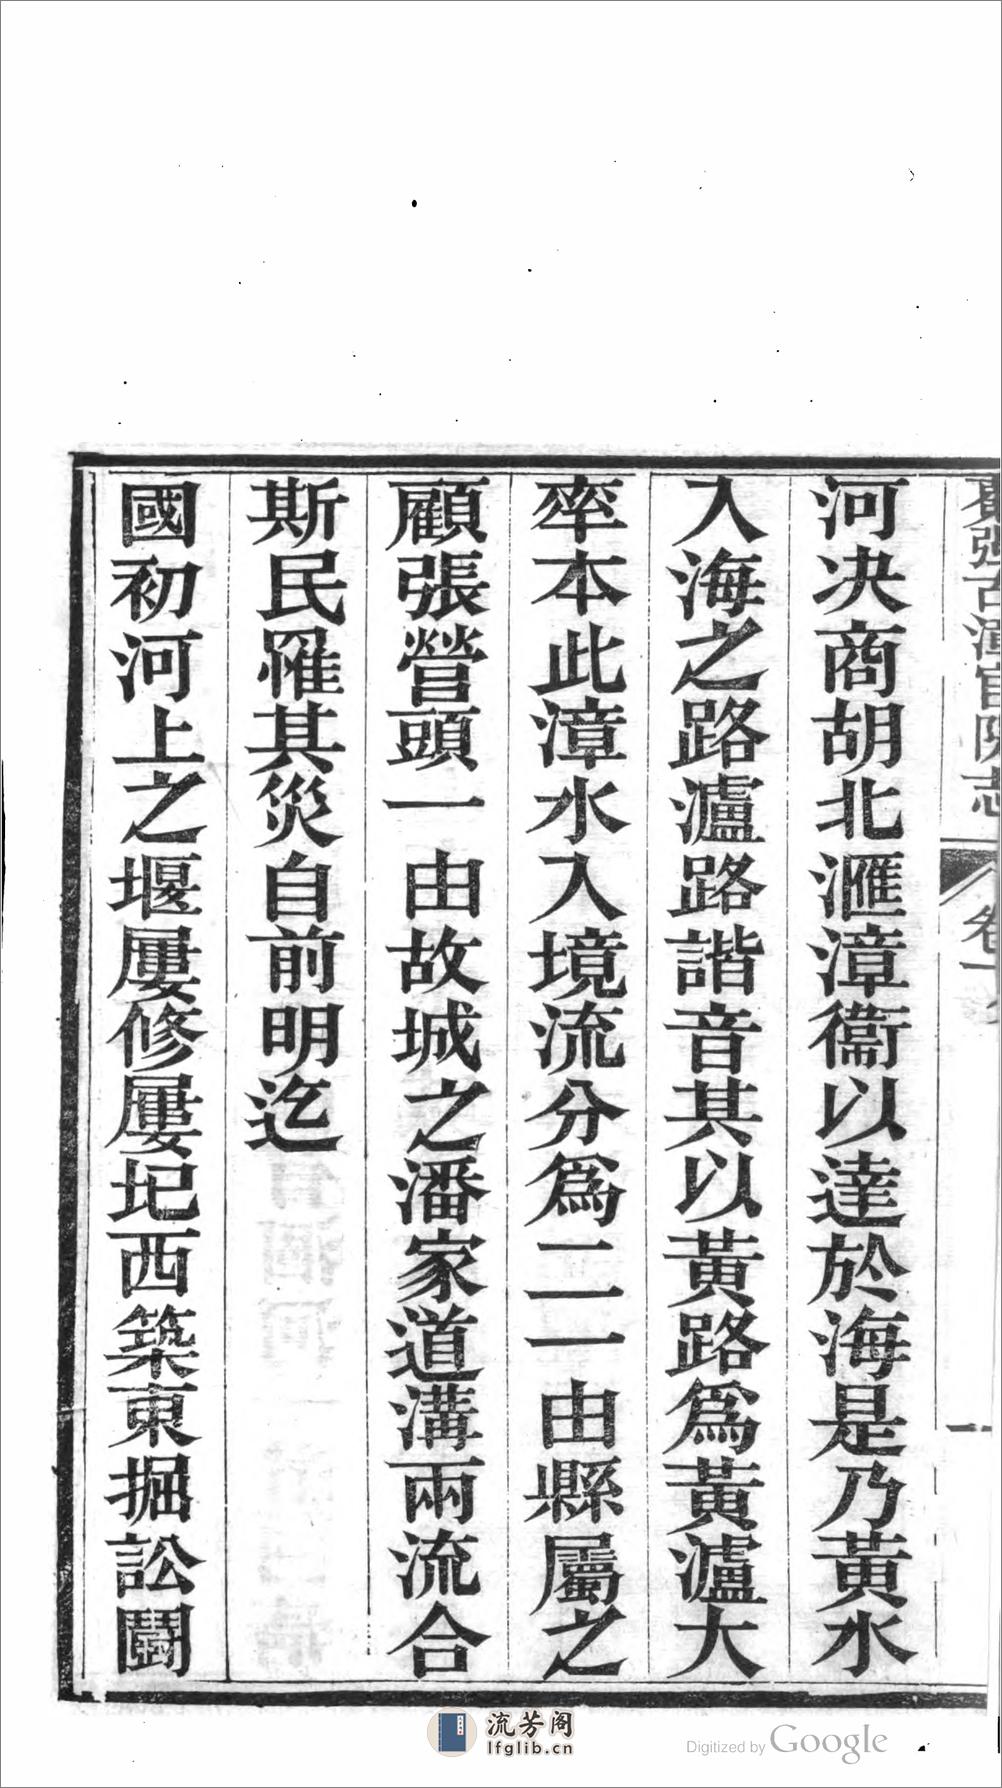 河決商胡北滙漳衞以達於海是乃黃水
入海之路瀘路諧音其以黃路爲黃瀘大
率本此漳水入境流分爲二一由縣屬之
顧張營頭一由故城之潘家道溝兩流合
斯民罹其災自前明迄
國初河上之堰屢修屢圮西築東掘訟鬪
流芳阁
lfglib.cn
Digitized by Google